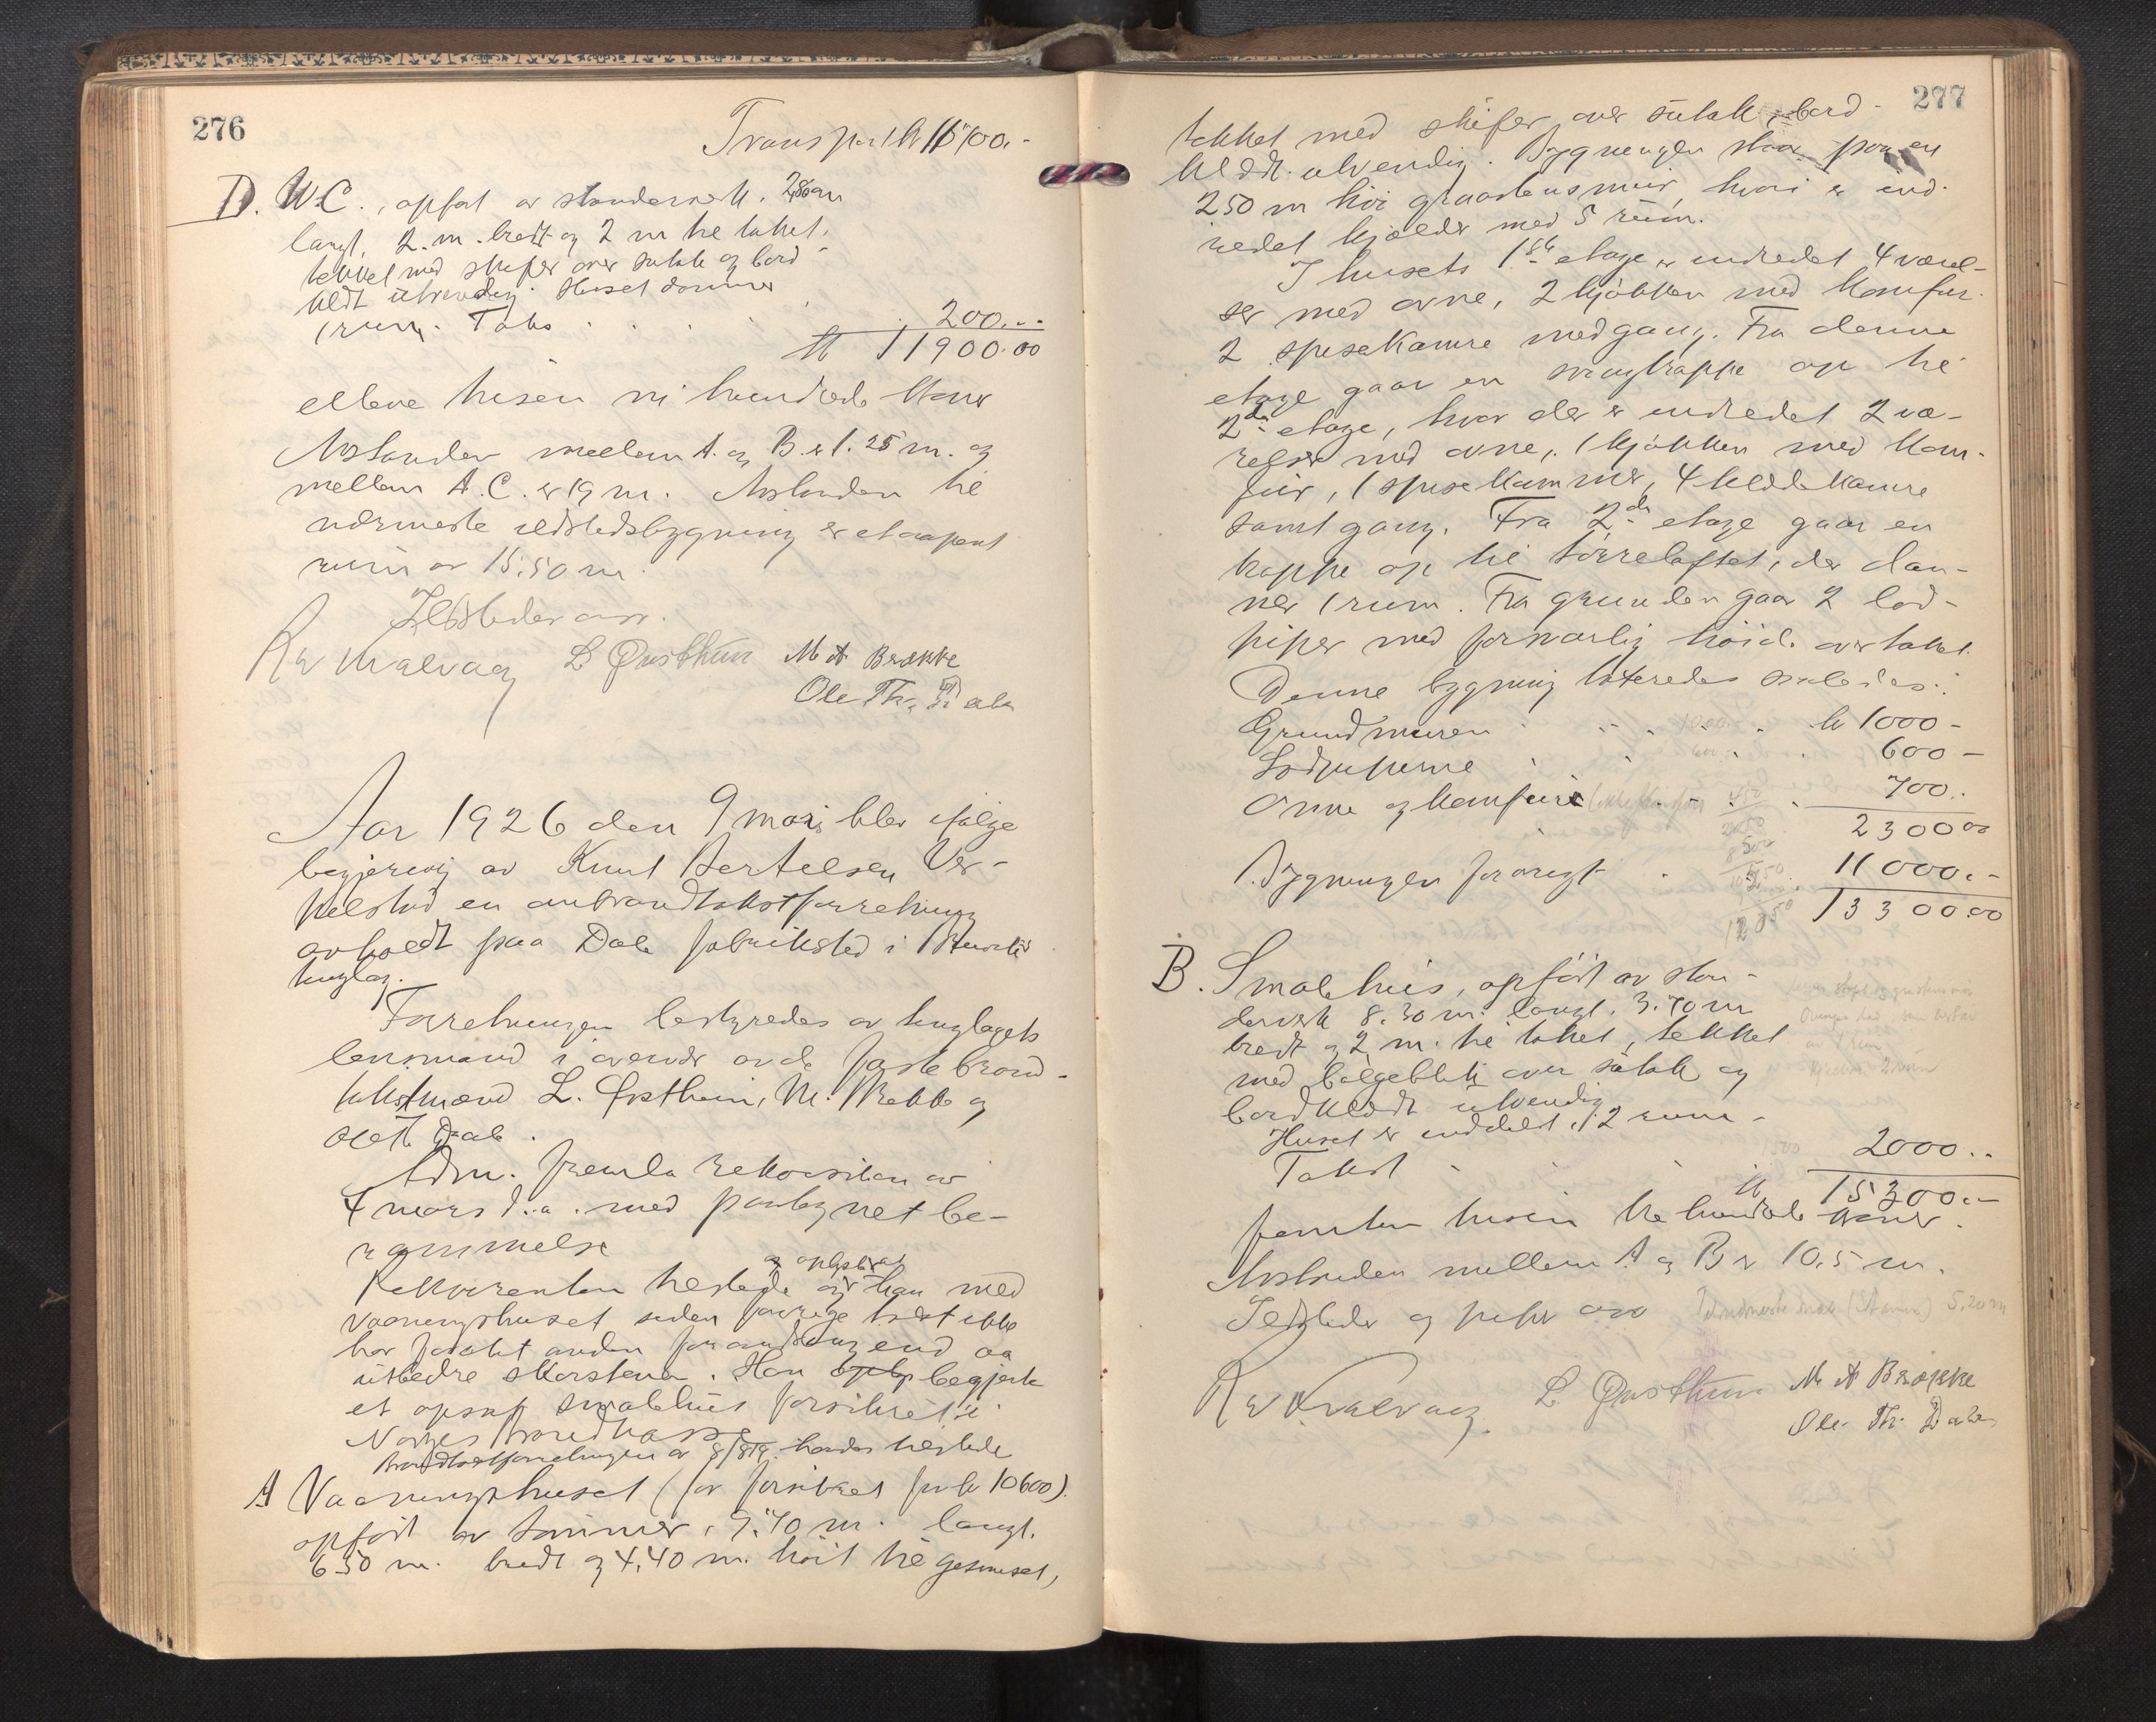 276
Transport kr 11700.-
D. W.C., opført av standerverk. 2,80 m
langt, 2. m. bredt og 2 m til taket.
tækket med skifer over sutak og bord-
klædt utvendig. Huset danner
1 rum. Takst 200.--
kr 11900.00
elleve tusen ni hundrede kroner
Avstanden mellem A. og B. er 1.25 m. og
mellem A. C. er 19 m. Avstanden til
nærmeste ildstedsbygning er et aapent
rum av 15.50 m.
Ildsteder ass.
R W Kvalvaag L Østhun M A Brække
Ole Th. Dale
Aar 1926 den 9 mars blev ifølge
begjæring av Knut Bertelsen Ver-
pelstad en anbrandtakstforretning
avholdt paa Dale fabriksted i Bruvik
tinglag.
Forretningen bestyredes av tinglagets
lensmand i nærvær av de faste brand-
takstmænd L. Østhun, M. Brekke og
Ole Th Dale.
Adm. fremla rekvisition av
4 mars d.a. med paategnet be-
rammelse
Rekvirenten tilstede og oplyste at han med
vaaningshuset siden forrige takst ikke
har foretat anden forandring end aa
utbedre skorstenen. Han begjærte
et opsat smalehus forsikret i
Norges Brandkasse
Brandtakstforretningen av 8/8 19 havdes tilstede
A Vaaningshuset (før forsikret for kr 10600).
opført av tømmer, 9.70 m. langt.
6.50 m. bredt og 4,40 m. høit til gesimset,
277
tækket med skifer over sutak, bord-
klædt utvendig. Bygningen staar paa en
2.50 m høi graastensmur, hvori er ind-
redet kjælder med 5 rum.
I husets 1ste etage er indredet 4 værel-
ser med ovne, 2 kjøkken med komfur.
2 spisekamre med gang. Fra denne
etage gaar en svingtrappe op til
2den etage, hvor der er indredet 2 væ-
relser med ovne, 1 kjøkken med kom-
fur, 1 spisekammer, 4 klædekamre
samt gang. Fra 2den etage gaar en
trappe op til tørreloftet, der dan-
ner 1 rum. Fra grunden gaar 2 lod-
piper med forsvarlig høide over taket.
Denne bygning taxeredes saaledes:
Grundmuren kr 1000-
Lodpiperne 600-
Ovne og komfurer 700.
2300 00
Bygningen forøvrigt 11000.-
13300.00
B. Smalehus, opført av stan-
derverk 8.30 m. langt. 3.70 m
bredt og 2 m. til taket, tækket
med bølgeblik over sutak og
bordklædt utvendig
Huset er inddelt i 2 rum-
Takst 2000..
kr 15300.-
femten tusen tre hundrede kroner.
Avstanden mellem A og B er 10,5 m.
Ildsteder og piper ass
5,20 m
R W Kvalvaag. L Østhun M A Brække
Ole Th. Dale